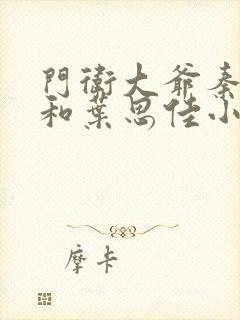 門衛大爺秦
和葉思佳小
摩卡